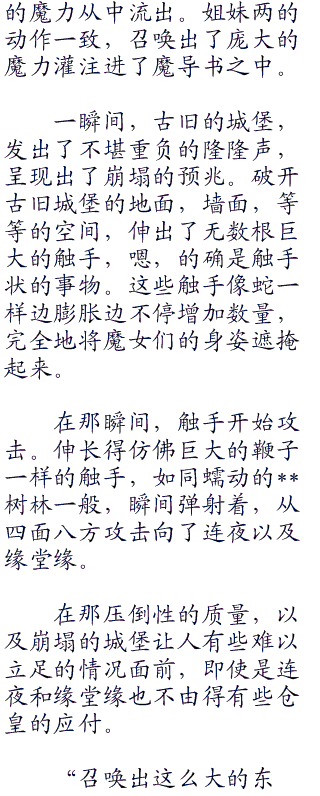 的魔力从中流出。姐妹两的
动作一致，召唤出了庞大的
魔力灌注进了魔导书之中。
一瞬间，古旧的城堡，
发出了不堪重负的隆隆声，
呈现出了崩塌的预兆。破开
古旧城堡的地面，墙面，等
等的空间，伸出了无数根巨
大的触手，嗯，的确是触手
状的事物。这些触手像蛇一
样边膨胀边不停增加数量，
完全地将魔女们的身姿遮掩
起来。
在那瞬间，触手开始攻
击。伸长得仿佛巨大的鞭子
一样的触手，如同蠕动的**
树林一般，瞬间弹射着，从
四面八方攻击向了连夜以及
缘堂缘。
在那压倒性的质量，以
及崩塌的城堡让人有些难以
立足的情况面前，即使是连
夜和缘堂缘也不由得有些仓
皇的应付。
“召唤出这么大的东